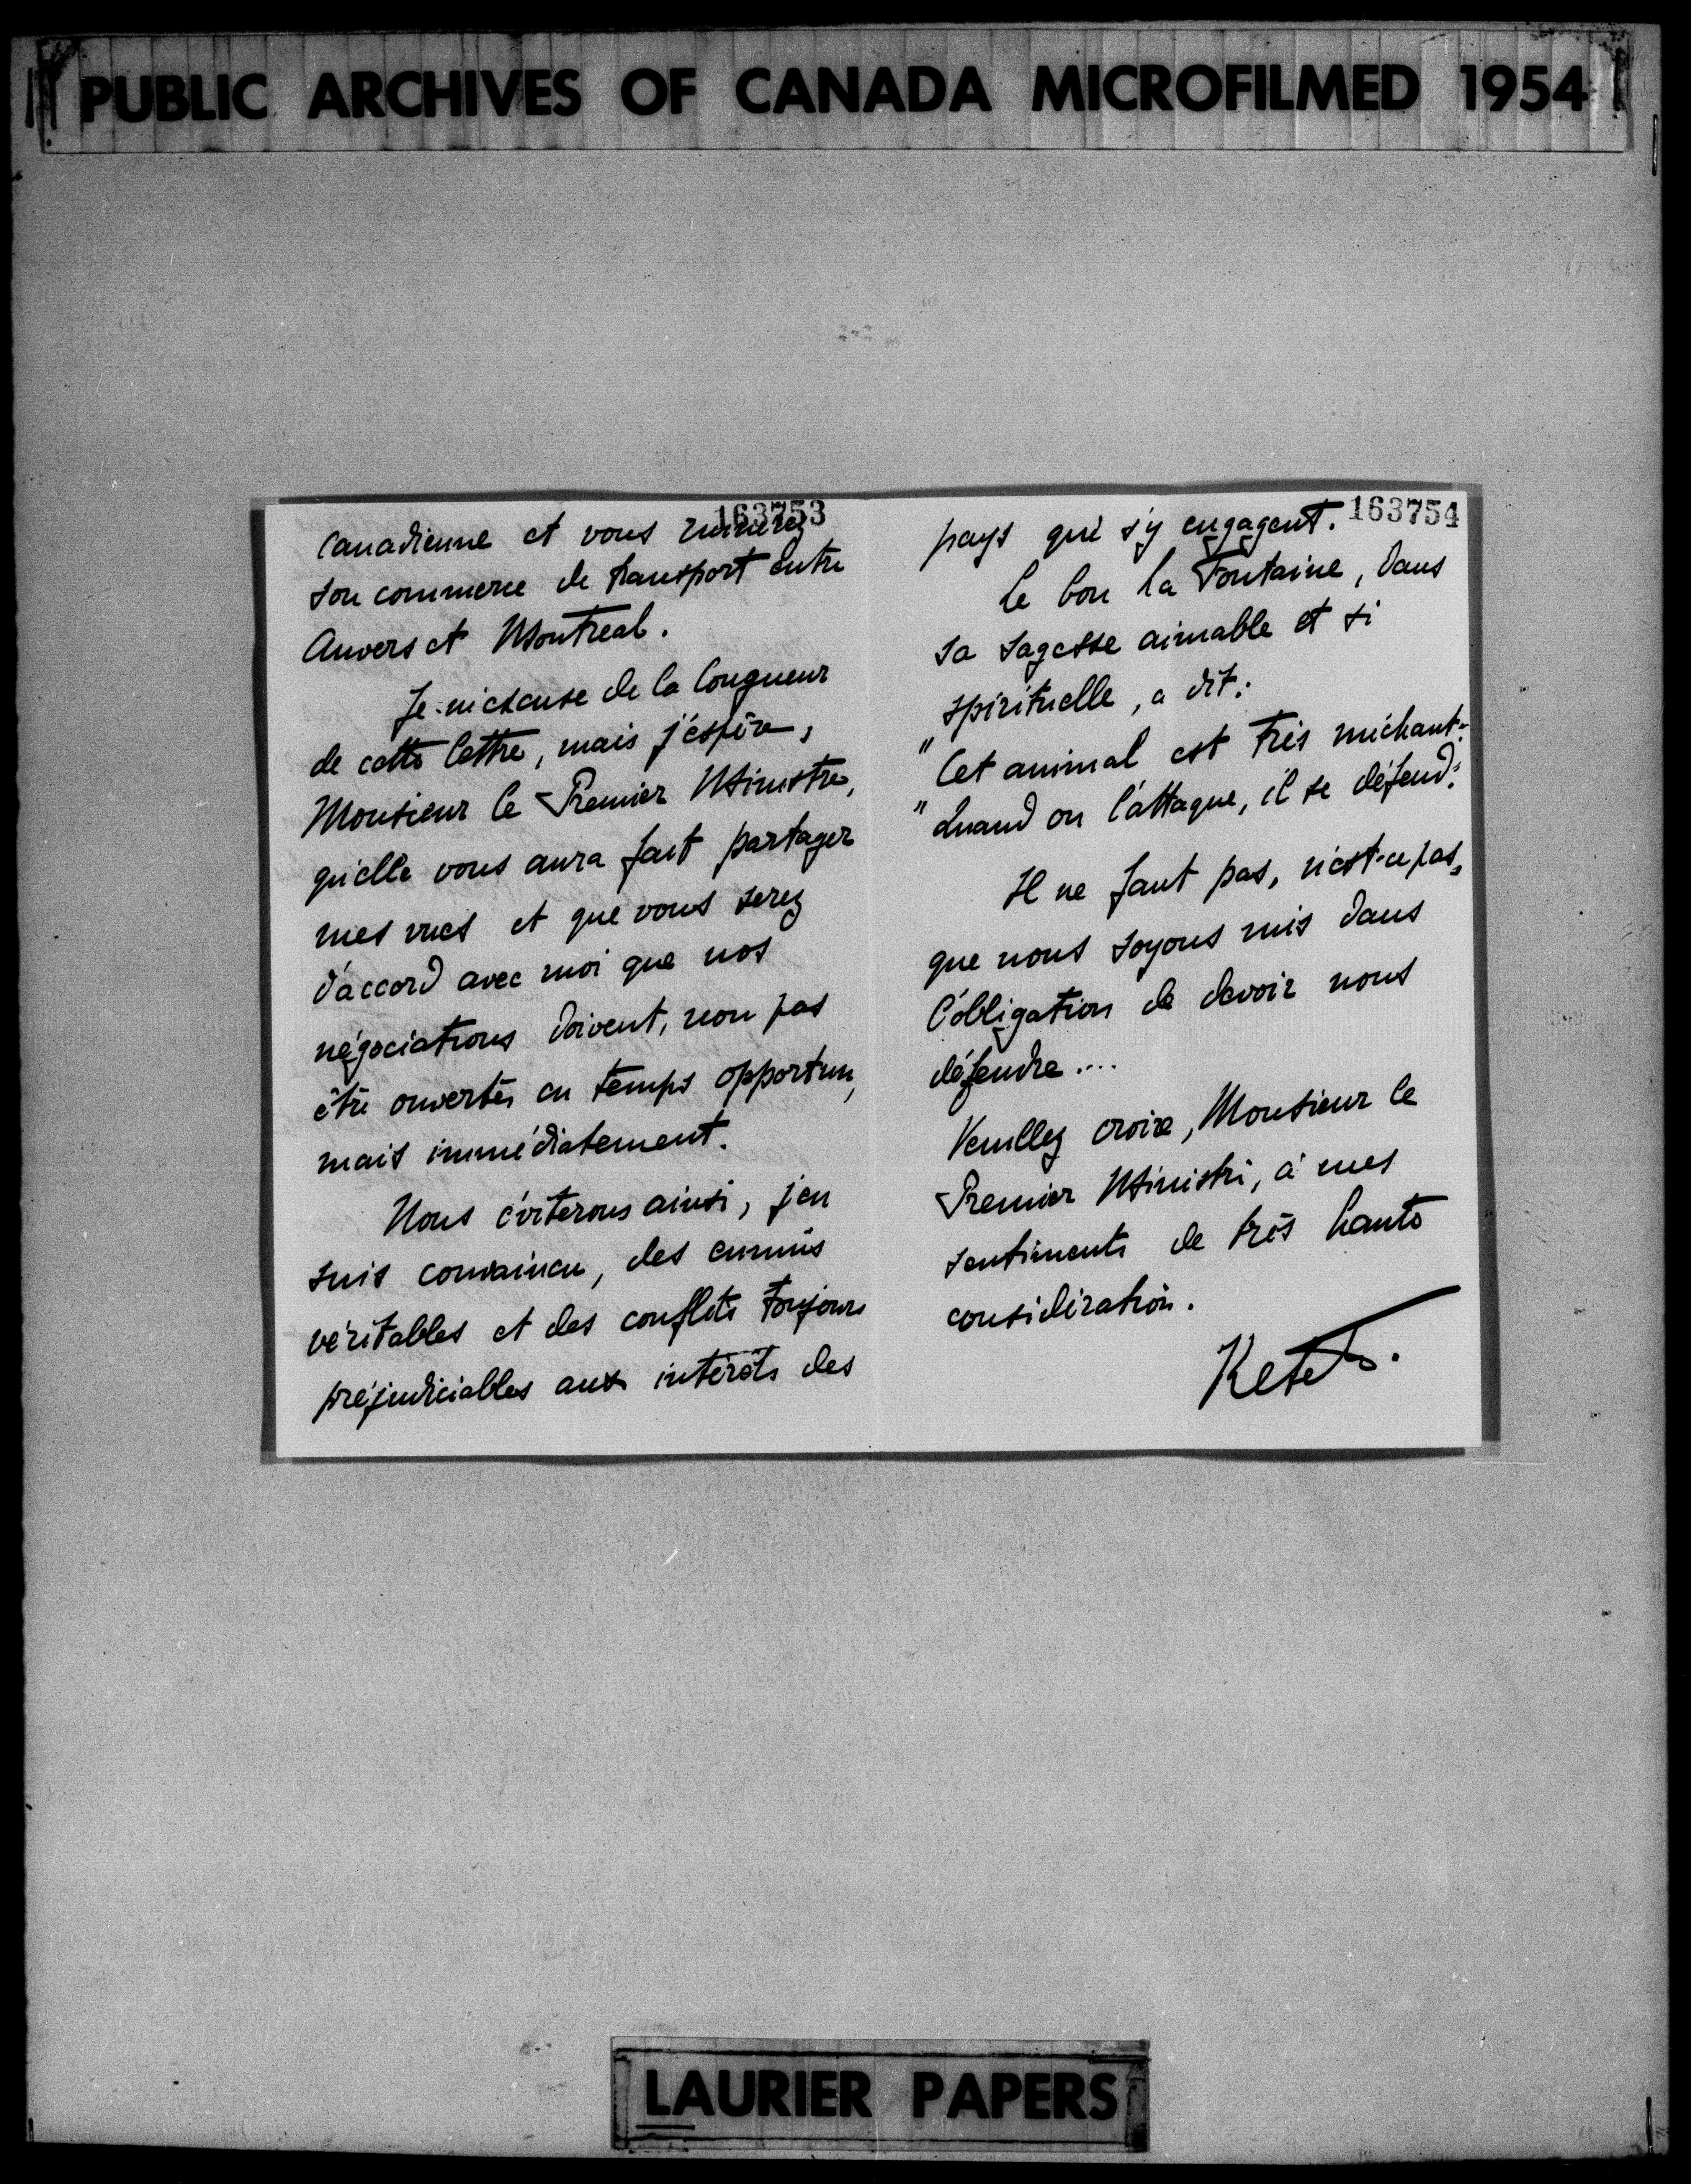 PUBLIC ARCHIVES OF CANADA MICROFILMED 1954
163753
Canadienne et vous ruinerez
son commerce de transport entre
Anvers et Montreal.
Je m'excuse de la longueur
de cette lettre, mais j'espère,
Monsieur le Premier Ministre,
qu'elle vous aura fait partager
mes vues et que vous serez
d'accord avec moi que nos
négociations doivent, non pas
être ouvertes en temps opportun,
mais immédiatement.
Nous éviterons ainsi, j'en
suis convaincu, des ennuis
véritables et des conflits toujours
préjudiciables aux intérêts des
163754
pays qui s'y engagent.
Le bon La Fontaine, dans
sa sagesse aimable et si
spirituelle, a dit:
"Cet animal est très méchant:
"Quand on l'attaque, il se défend."
Il ne faut pas, n'est-ce pas,
que nous soyons mis dans
l'obligation de devoir nous
défendre....
Veuillez croire, Monsieur le
Premier Ministre, à mes
sentiments de très haute
considération.
LAURIER PAPERS